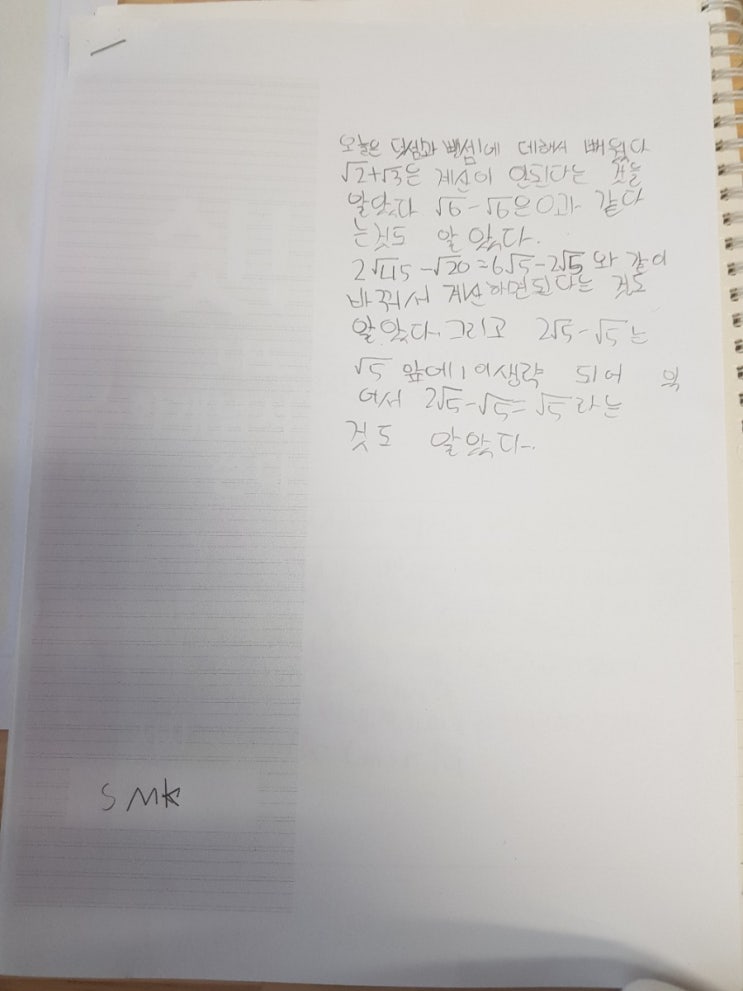 오늘은 덧셈과 뺄셈에 데해서 배웠다
√2+√3은 계산이 안된다는 것을
알았다 √6-√6은 0과 같다
는것도 알았다.
2√45-√20=6√5-2√5 와 같이
바꿔서 계산하면된다는 것도
알았다. 그리고 2√5-√5는
√5 앞에 1이생략 되어 있
어서 2√5-√5=√5라는
것도 알았다.
SMK